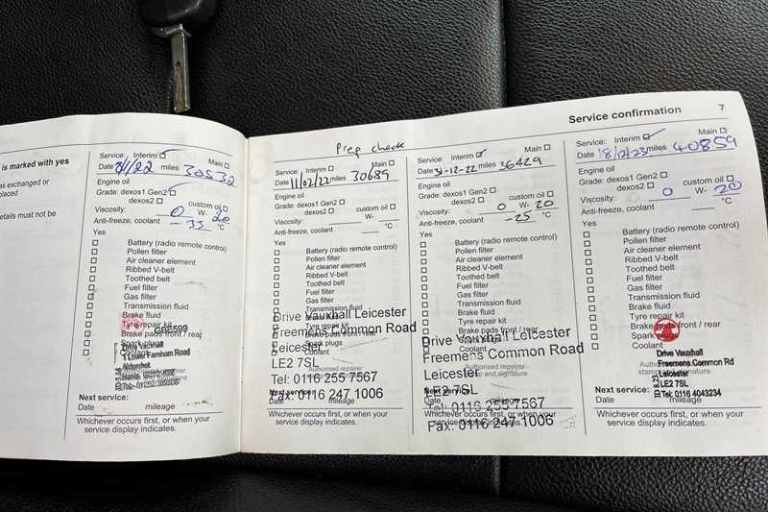 Service confirmation 7
is marked with yes
as exchanged or
placed
etails must not be
Service: Interim Main
Date /1/22 miles 30532
Engine oil
Grade: dexos1 Gen2
dexos2 custom oil
Viscosity: 0 W- 20
Anti-freeze, coolant -35 °C
Yes
Battery (radio remote control)
Pollen filter
Air cleaner element
Ribbed V-belt
Toothed belt
Fuel filter
Gas filter
Transmission fluid
Brake fluid
Tyre repair kit
Brake pads front / rear
Spark plugs
Coolant
Drive Vauxhall
1 Lower Farnham Road
Aldershot
Next service:
Date mileage
Whichever occurs first, or when your
service display indicates.
Prep check
Service: Interim Main
Date 11/02/22 miles 30689
Engine oil
Grade: dexos1 Gen2
dexos2 custom oil
Viscosity: W-
Anti-freeze, coolant °C
Yes
Battery (radio remote control)
Pollen filter
Air cleaner element
Ribbed V-belt
Toothed belt
Fuel filter
Gas filter
Transmission fluid
Brake fluid
Tyre repair kit
Brake pads front / rear
Spark plugs
Coolant
Drive Vauxhall Leicester
Freemens Common Road
Leicester
LE2 7SL
Tel: 0116 255 7567
Fax: 0116 247 1006
Next service:
Date mileage
Whichever occurs first, or when your
service display indicates.
Service: Interim Main
Date 31-12-22 miles 36429
Engine oil
Grade: dexos1 Gen2
dexos2 custom oil
Viscosity: 0 W- 20
Anti-freeze, coolant -25 °C
Yes
Battery (radio remote control)
Pollen filter
Air cleaner element
Ribbed V-belt
Toothed belt
Fuel filter
Gas filter
Transmission fluid
Brake fluid
Tyre repair kit
Brake pads front / rear
Spark plugs
Coolant
Drive Vauxhall Leicester
Freemens Common Road
Leicester
LE2 7SL
Tel: 0116 255 7567
Fax: 0116 247 1006
Next service:
Date mileage
Whichever occurs first, or when your
service display indicates.
Service: Interim Main
Date 18/12/23 miles 40859
Engine oil
Grade: dexos1 Gen2
dexos2 custom oil
Viscosity: 0 W- 20
Anti-freeze, coolant °C
Yes
Battery (radio remote control)
Pollen filter
Air cleaner element
Ribbed V-belt
Toothed belt
Fuel filter
Gas filter
Transmission fluid
Brake fluid
Tyre repair kit
Brake pads front / rear
Spark
Coolant
Drive Vauxhall
Freemens Common Rd
Leicester
LE2 7SL
Tel: 0116 4043234
Next service:
Date mileage
Whichever occurs first, or when your
service display indicates.